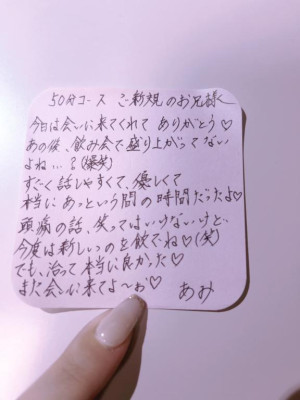 50分コース ご新規のお兄様へ
今日は会いに来てくれて ありがとう♡
あの後、飲み会で盛り上がってない
よね…?(爆笑)
すごく話しやすくて、優しくて
本当にあっという間の時間だったよ♡
頭痛の話、笑ってはいけないけど、
今度は新しいのを飲んでね♡(笑)
でも、治って本当に良かった♡
また会いに来てよ〜ぉ♡
あみ